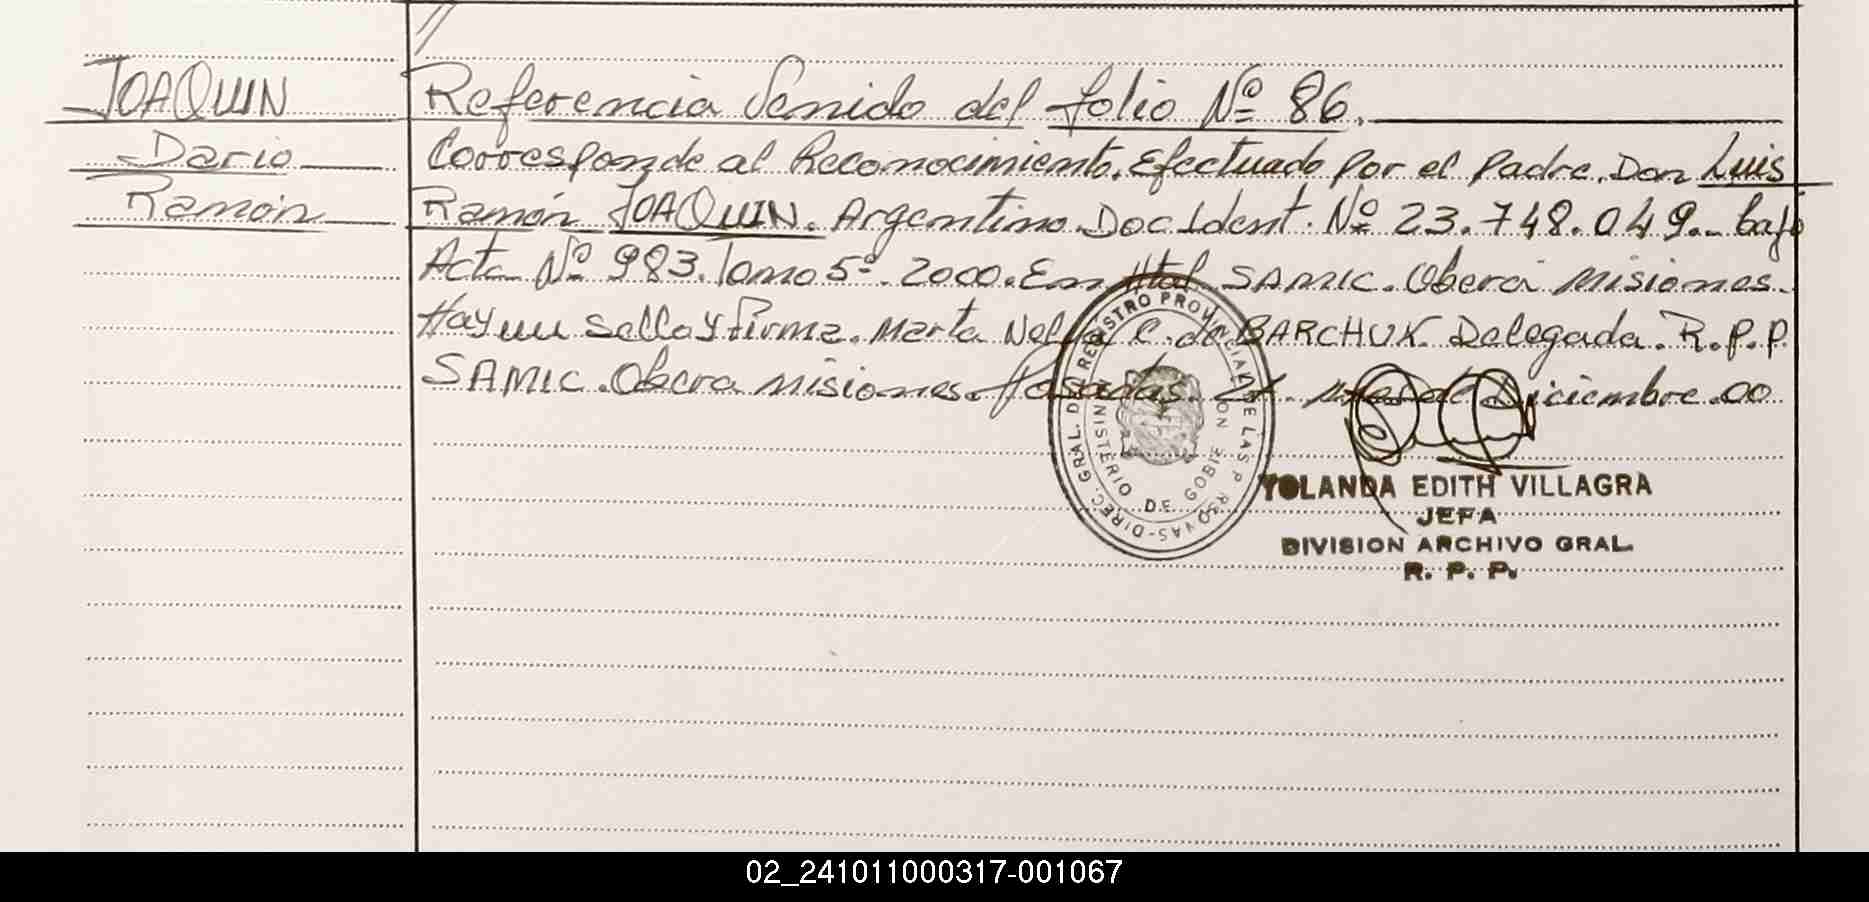 JOAQUIN
Dario
Ramón
Referencia Venido del folio Nº 86.
Corresponde al Reconocimiento. Efectuado por el padre. Don Luis
Ramón JOAQUIN. Argentino. Doc Ident. Nº 23.748.049.- bajo
Acta Nº 983. Tomo 5º. 2000. En Htal. SAMIC. Oberá Misiones.
Hay un Sello y firma. Marta Nelida C. de BARCHUK. Delegada. R.P.P.
SAMIC. Obera Misiones. Posadas. de Diciembre.00
DIREC. GRAL. DEL REGISTRO PROVINCIAL DE LAS PERSONAS
MINISTERIO DE GOBIERNO
YOLANDA EDITH VILLAGRA
JEFA
DIVISION ARCHIVO GRAL.
R. P. P.
02_241011000317-001067